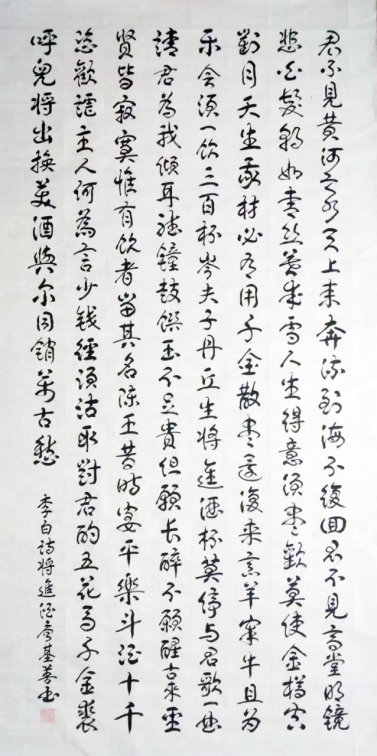 君不見黄河之水天上来奔流到海不復回君不見高堂明鏡
悲白髮朝如青丝暮成雪人生得意须尽歡莫使金樽空
對月天生我材必有用千金散尽還復来烹羊宰牛且为
乐会须一飲三百杯岑夫子丹丘生将進酒杯莫停与君歌一曲
请君為我倾耳聽鐘鼓饌玉不足貴但願长醉不願醒古来聖
贤皆寂寞惟有飲者留其名陈王昔時宴平樂斗酒十千
恣歡謔主人何為言少钱徑须沽取對君酌五花馬千金裘
呼兒将出换美酒與尔同銷萬古愁
李白诗将進酒 基 书